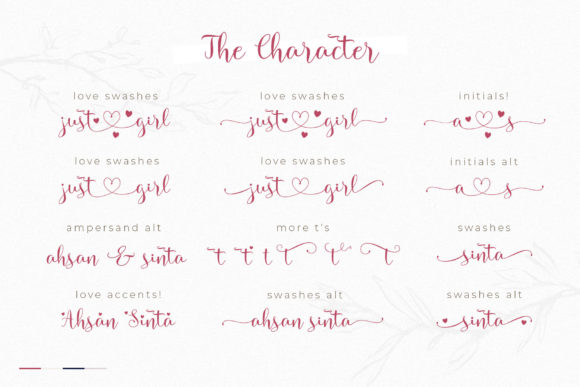 The Character
love swashes
just girl
love swashes
just girl
initials!
a s
love swashes
just girl
love swashes
just girl
initials alt
a s
ampersand alt
ahsan & sinta
more t's
t t t t t t t
swashes
sinta
love accents!
Ahsan Sinta
swashes alt
ahsan sinta
swashes alt
sinta